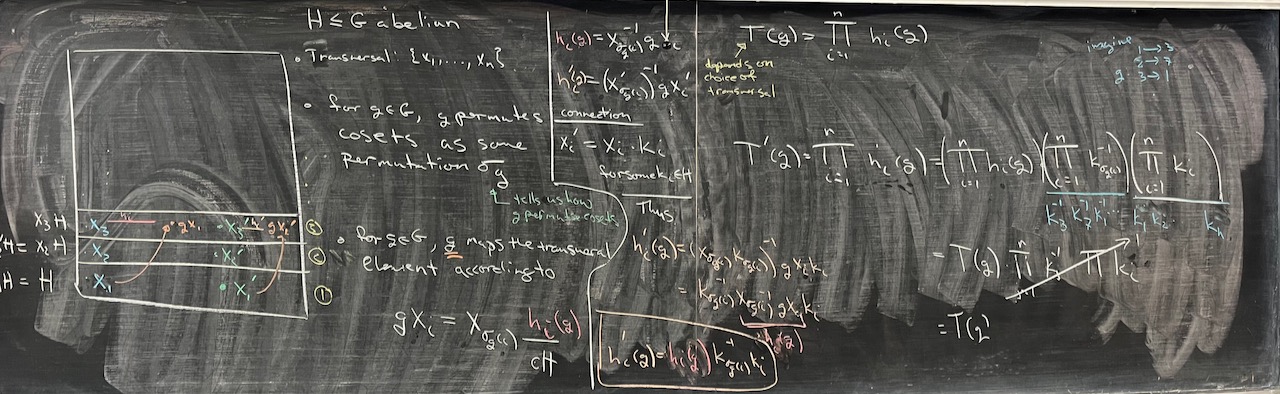 H ≤ G abelian
• Transversal: {x₁,..., xₙ}
• for g∈G, g permutes
cosets as some
permutation σ_g
tells us how
g permutes cosets
• for g∈G, g maps the transversal
element according to
g x_i = x_{σ_g(i)} h_i(g)
∈H
x₃H
H = x₂H
H = H
x₃ h_i g x₁ x₃' h' g x₁'
x₂ x₂'
x₁ x₁'
③
②
①
h_i(g) = x_{σ_g(i)}^{-1} g x_i
h_i'(g) = (x'_{σ_g(i)})^{-1} g x_i'
connection
x_i' = x_i · k_i
for some k_i ∈ H
Thus
h_i'(g) = (x_{σ_g(i)} k_{σ_g(i)})^{-1} g x_i k_i
= k_{σ_g(i)}^{-1} x_{σ_g(i)}^{-1} g x_i k_i
h_i(g)
h_i'(g) = h_i(g) k_{σ_g(i)}^{-1} k_i
T(g) = ∏_{i=1}^{n} h_i(g)
depends on
choice of
transversal
imagine 1→3
2→7
g 3→1
T'(g) = ∏_{i=1}^{n} h_i'(g) = (∏_{i=1}^{n} h_i(g)) (∏_{i=1}^{n} k_{σ_g(i)}^{-1}) (∏_{i=1}^{n} k_i)
k₃^{-1} k₇^{-1} k₁^{-1}... k₁ k₂ ... kₙ
= T(g) · ∏_{i=1}^{n} k_i^{-1} ∏ k_i 1
= T(g)